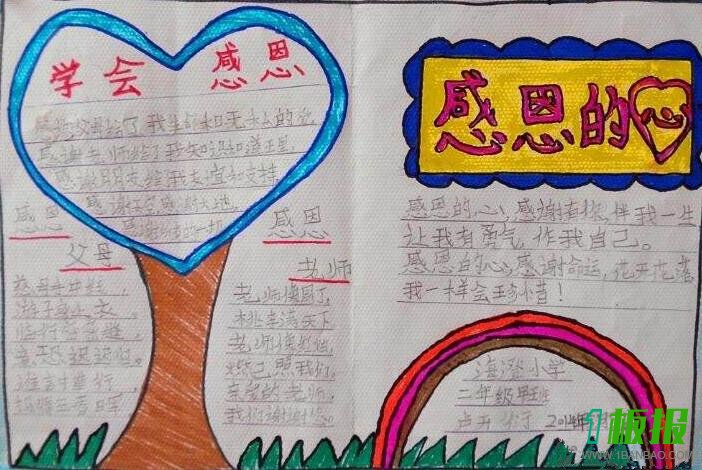 学会 感恩
感谢父母给了我生命和无私的爱
感谢老师给了我知识和
感谢朋友给我友谊和支持
感谢天空感谢大地
感谢的一切
感恩
父母
慈母手中线，
游子身上衣，
临行密密缝，
意恐迟迟归。
谁言寸草心，
报得三春晖。
感恩
老师
老师像园丁
桃李满天下
老师像红烛
燃己照我们
亲爱的老师，
我们谢谢您。
感恩的心
感恩的心，感谢有你，伴我一生
让我有勇气作我自己。
感恩的心，感谢命运，花开花落
我一样会珍惜！
海澄小学
二年级班
2014年
1板报
WWW.1BANBAO.COM